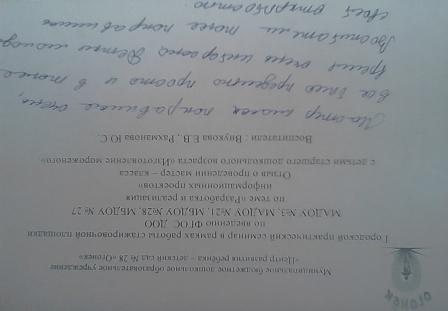 ОГОНЕК
Муниципальное бюджетное дошкольное образовательное учреждение
«Центр развития ребёнка – детский сад № 28 «Огонек»
Городской практический семинар в рамках работы стажировочной площадки
по введению ФГОС ДОО
МАДОУ №3, МАДОУ №21, МБДОУ №28, МБДОУ № 27
по теме «Разработка и реализация
информационных проектов»
Отзыв о проведении мастер – класса
с детьми старшего дошкольного возраста «Изготовление мороженого»
Воспитатели : Внукова Е.В., Рахманова Ю.С.
Мастер класс понравился очень,
все было продумано просто и в тоже
время очень интересно Детям
Воспитателям тоже понравилось